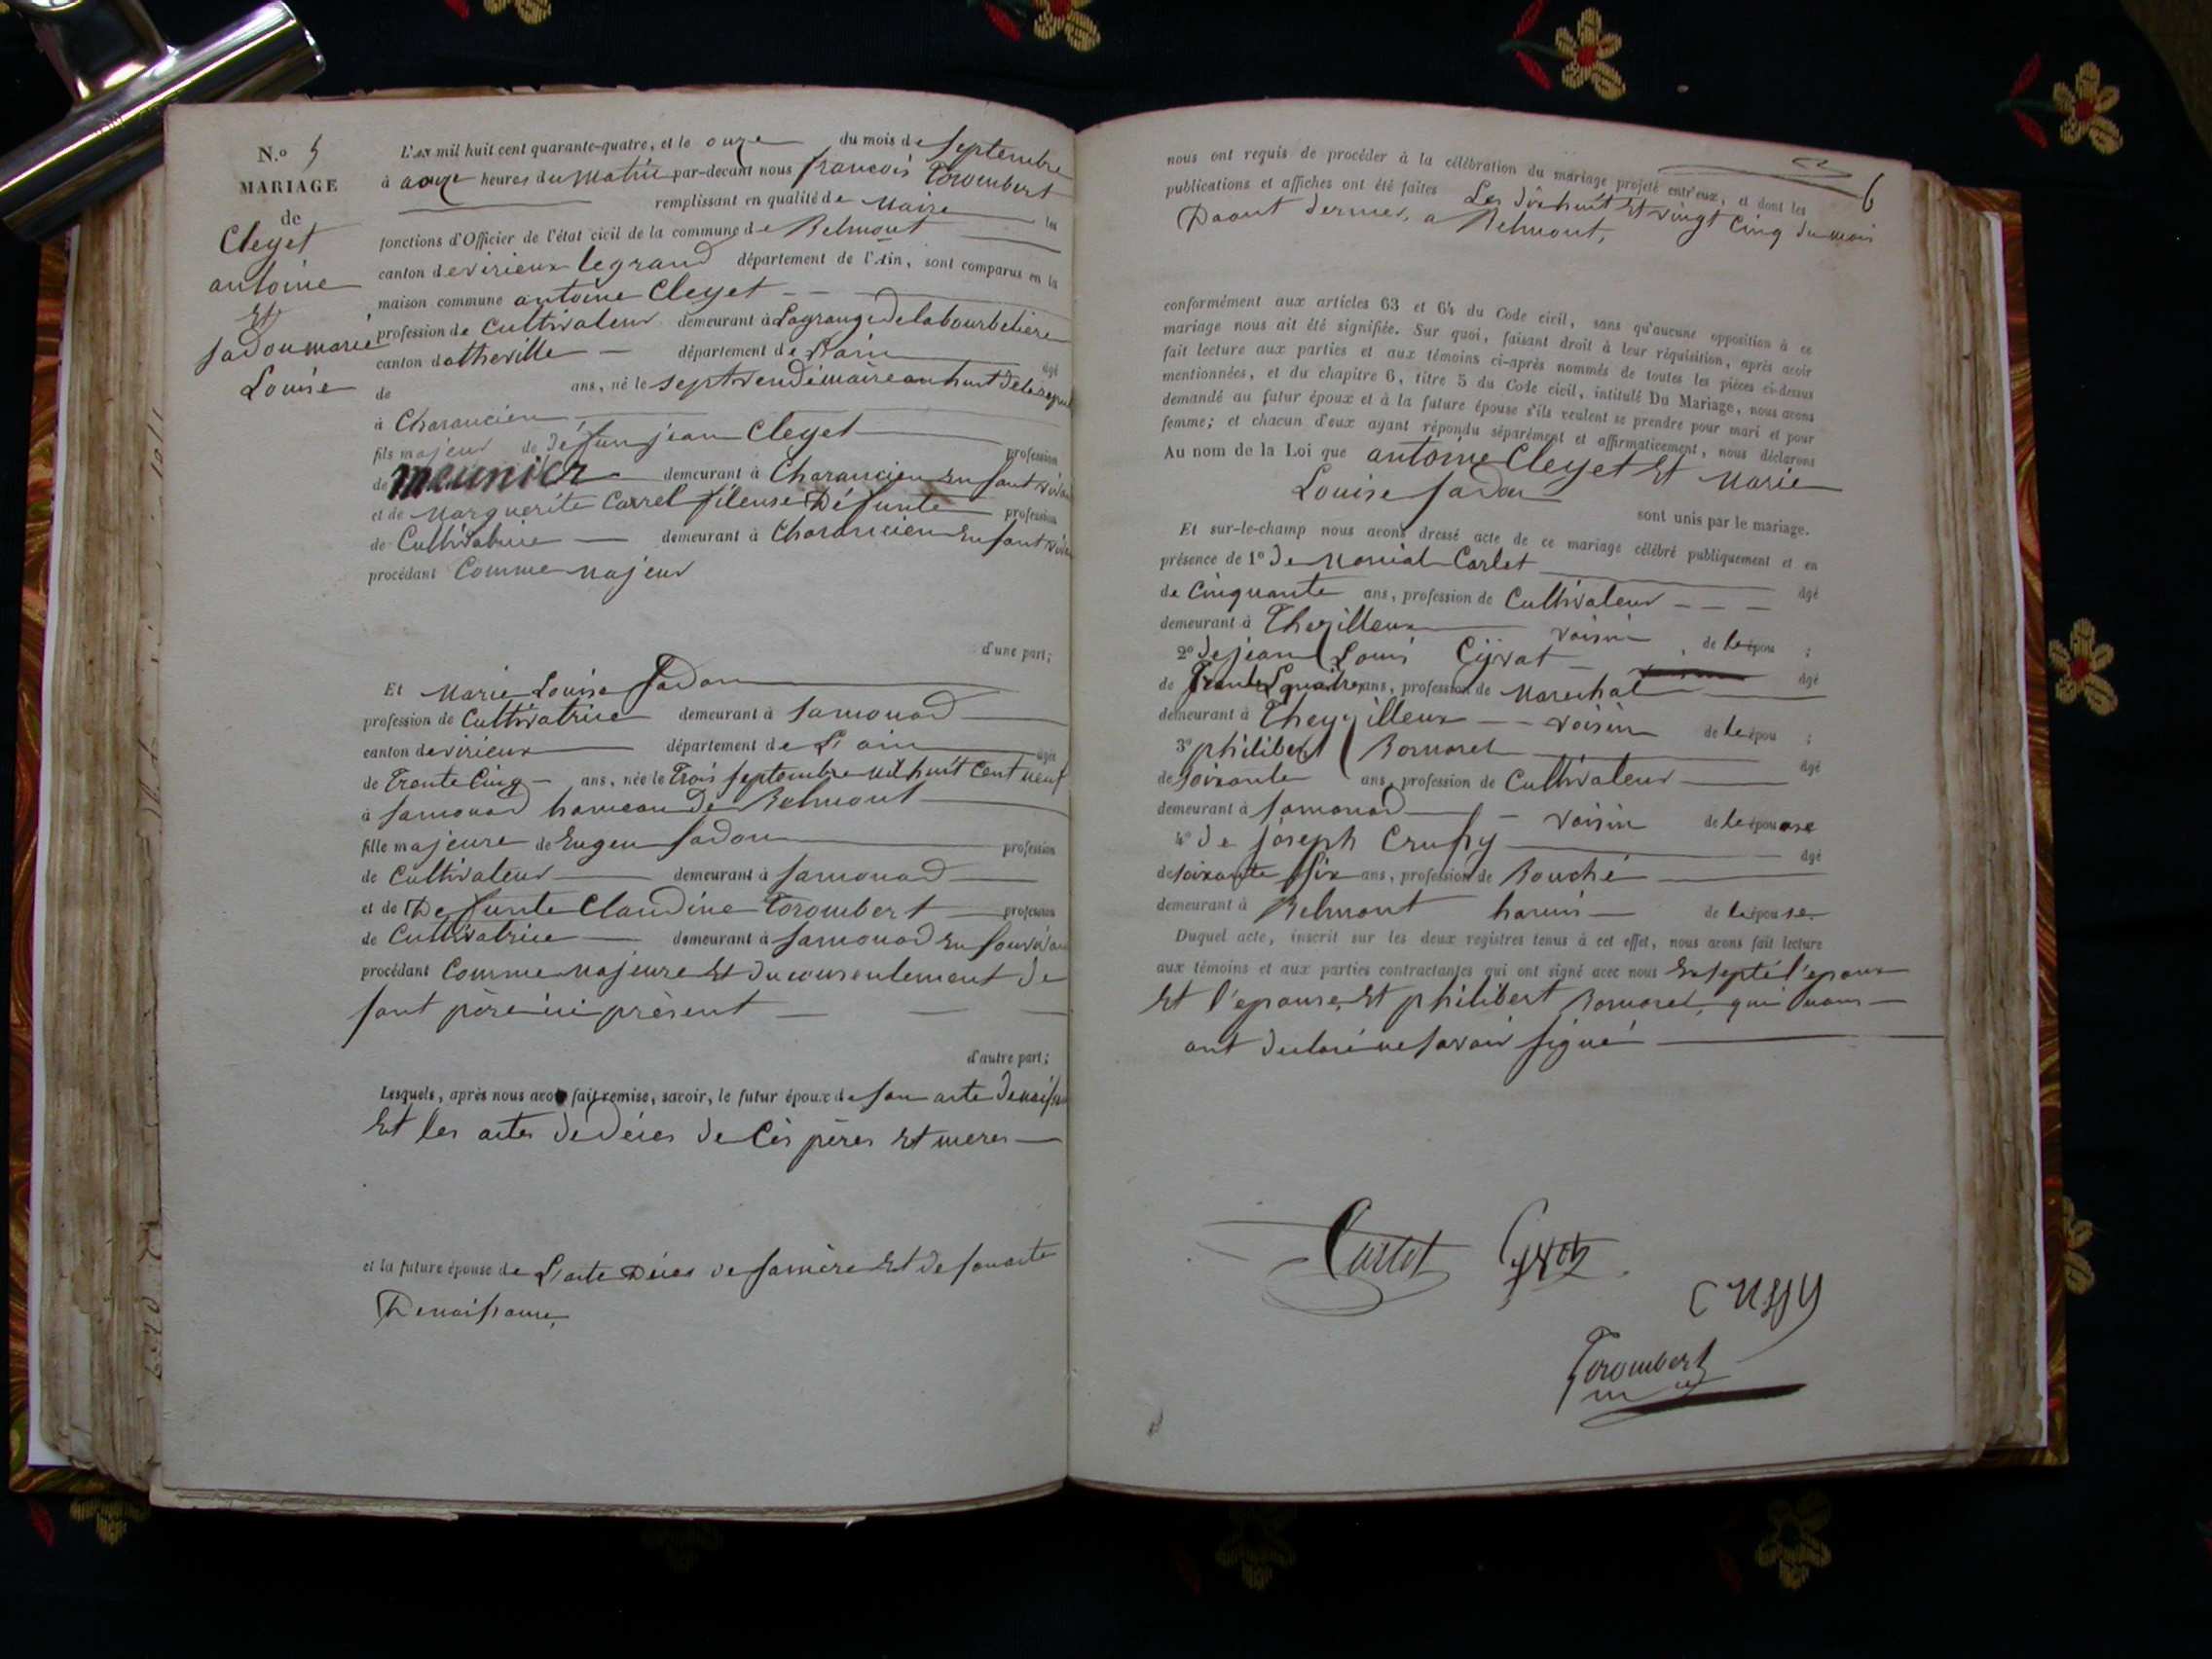 N.o 5
MARIAGE
de
Cleyet
antoine
Et
Sadou marie
Louise
L'an mil huit cent quarante-quatre, et le onze du mois de Septembre
à onze heures du matin par-devant nous françois Torombert
remplissant en qualité de Maire les
fonctions d'Officier de l'état civil de la commune de Belmont
canton de virieux legrand département de l'Ain, sont comparus en la
maison commune antoine Cleyet
profession de Cultivateur demeurant à Lagrange de labourbeliere
canton dotheville département de L'ain âgé
de ans, né le sept vendémiaire an huit de la
à Charancien
fils majeur de défun jean Cleyet profession
de meunier demeurant à Charancien En sont
et de Marguerite Carrel fileuse Défunte profession
de Cultivatrice demeurant à Charancien En sont
procédant Comme Majeur
d'une part;
Et Marie Louise Sadou
profession de Cultivatrice demeurant à Samonod
canton de virieux département de L'ain âgée
de Trente Cinq ans, née le Trois Septembre Mil huit Cent Neuf
à Samonod hameau de Belmont
fille majeure de Eugen Sadou profession
de Cultivateur demeurant à Samonod
et de Defunte Claudine Torombert profession
de Cultivatrice demeurant à Samonod En
procédant Comme Majeure Et du consentement de
sont père ici présent
d'autre part;
Lesquels, après nous avoir fait remise, savoir, le futur époux de son acte de
Et les actes de déces de Cès pères Et meres
et la future épouse de L'acte Déces de sa mère Et de son acte
De naissance,
6
nous ont requis de procéder à la célébration du mariage projeté entr'eux, et dont les
publications et affiches ont été faites Les dixhuit Et vingt Cinq du mois
Daout dernier, a Belmont,
conformément aux articles 63 et 64 du Code civil, sans qu'aucune opposition à ce
mariage nous ait été signifiée. Sur quoi, faisant droit à leur réquisition, après avoir
fait lecture aux parties et aux témoins ci-après nommés de toutes les pièces ci-dessus
mentionnées, et du chapitre 6, titre 5 du Code civil, intitulé Du Mariage, nous avons
demandé au futur époux et à la future épouse s'ils veulent se prendre pour mari et pour
femme; et chacun d'eux ayant répondu séparément et affirmativement, nous déclarons
Au nom de la Loi que antoine Cleyet Et Marie
Louise Sadou
sont unis par le mariage.
Et sur-le-champ nous avons dressé acte de ce mariage célébré publiquement et en
présence de 1o de Marial Carlet âgé
de Cinquante ans, profession de Cultivateur
demeurant à Thezilleux voisin de le épou ;
2o de jean Louis Cyvat âgé
de Trente quatre ans, profession de Marechal
demeurant à Thezzilleux voisin de le épou ;
3o philibert Bornarel âgé
de soixante ans, profession de Cultivateur
demeurant à Samonod voisin de le épouse
4o de joseph Crussy âgé
de soixante Six ans, profession de Bouché
demeurant à Belmont de le épouse.
Duquel acte, inscrit sur les deux registres tenus à cet effet, nous avons fait lecture
aux témoins et aux parties contractantes qui ont signé avec nous Exsepté l'epoux
Et l'epouse, Et philibert Bornarel, qui nous
ont declaré ne savoir signé
Carlet
crussy
Torombert